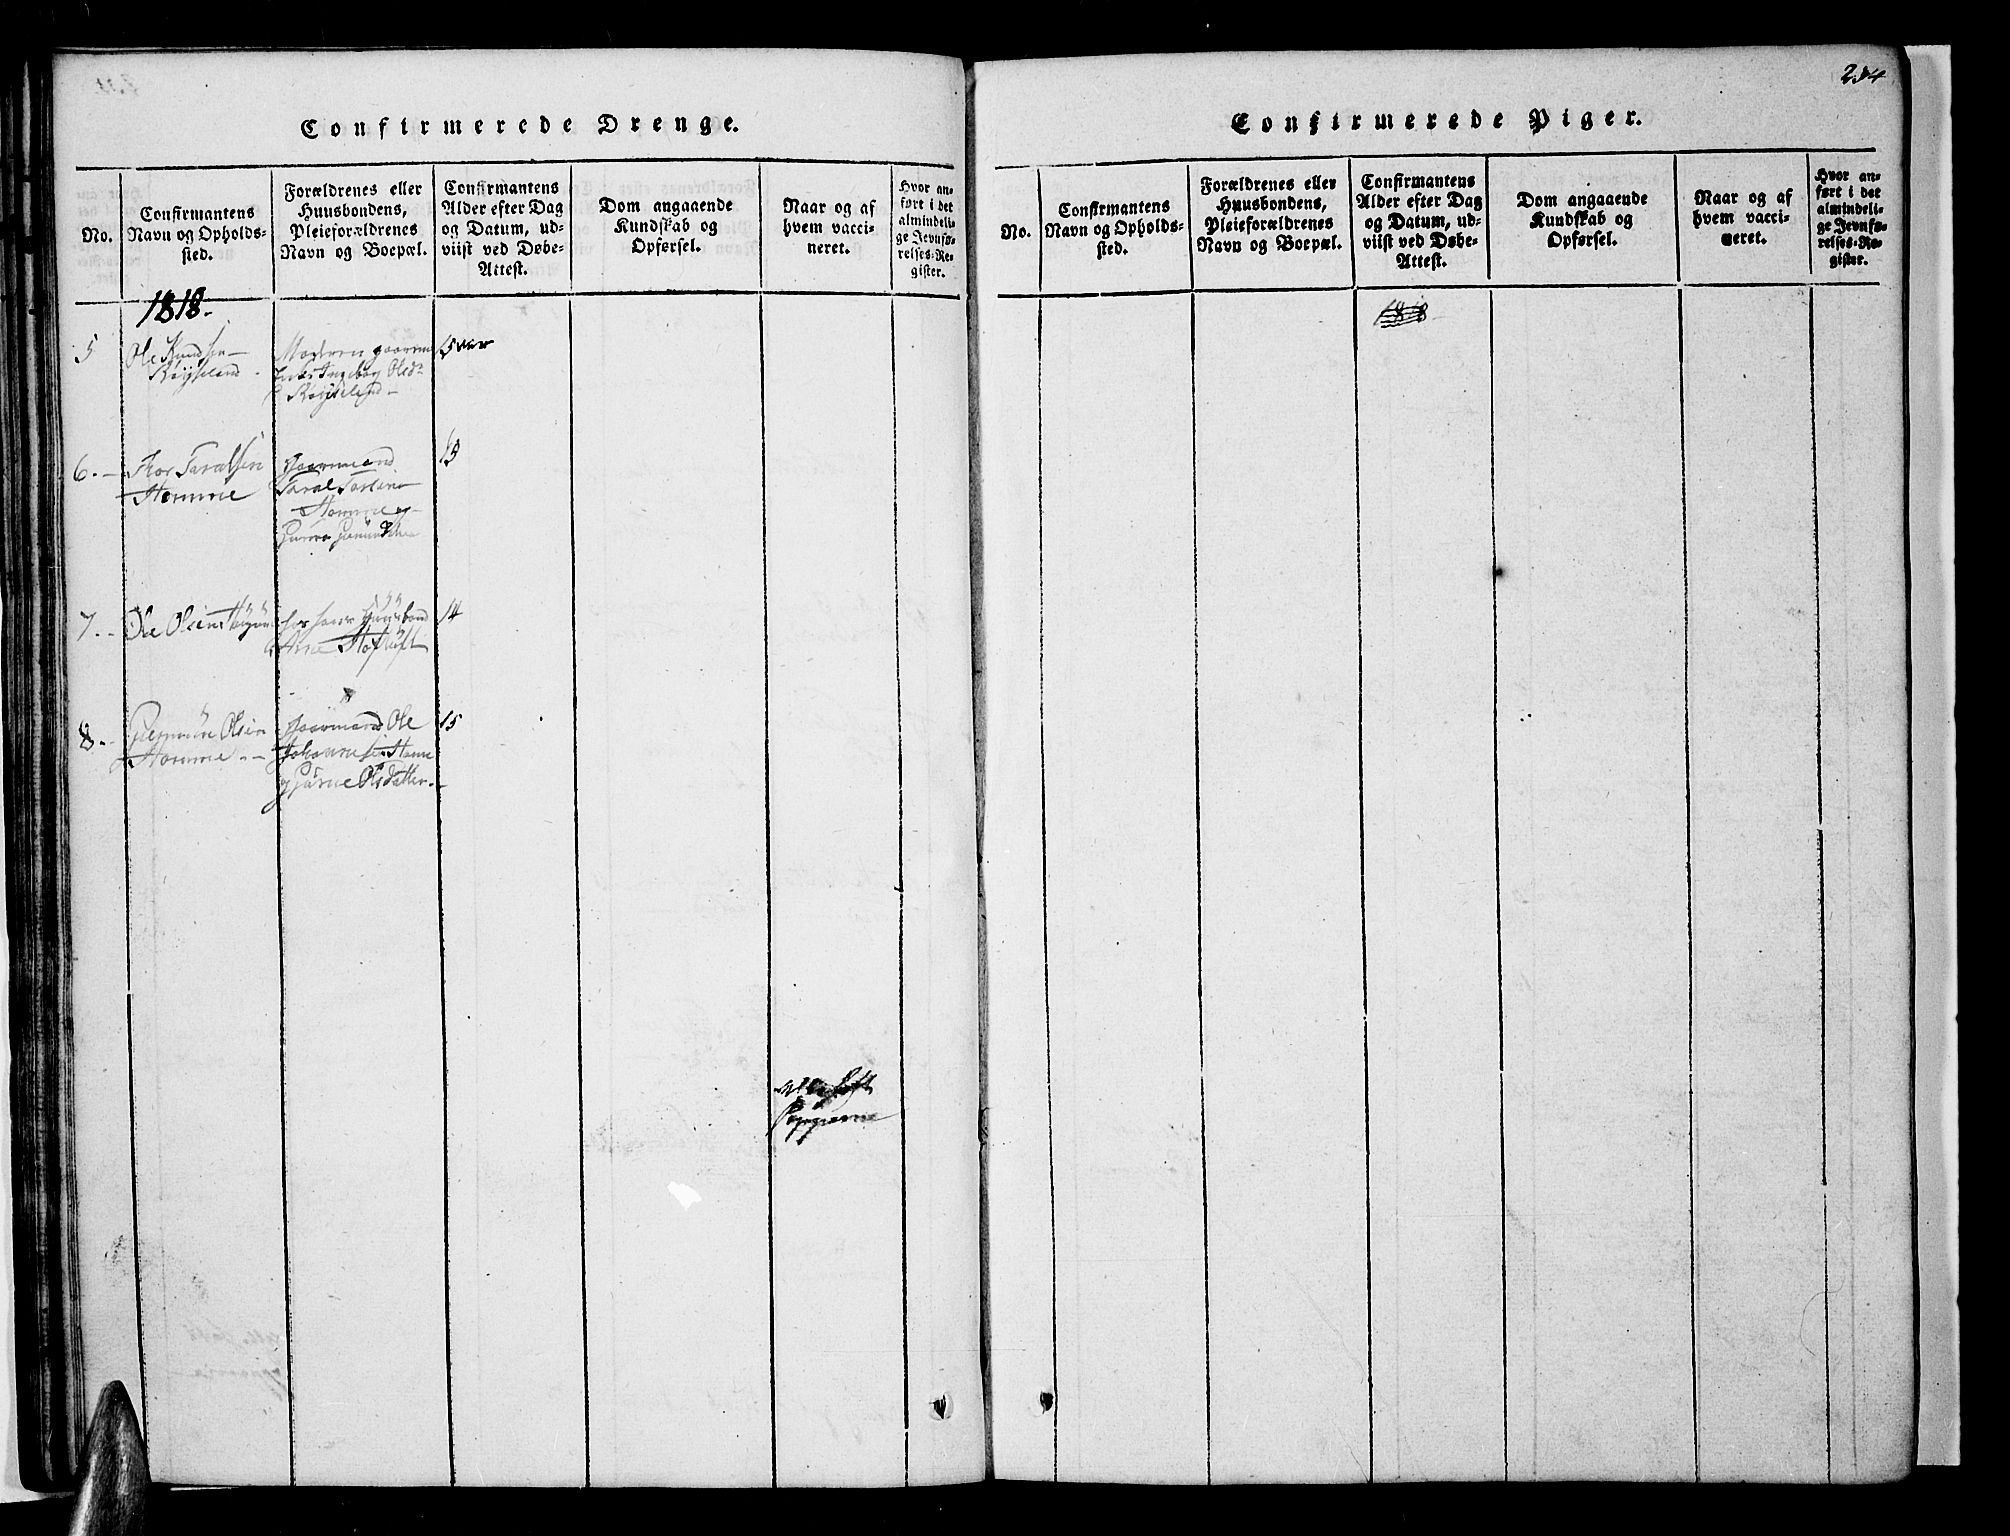 Confirmerede Drenge.
No.
Confirmantens
Navn og Opholds-
sted.
Forældrenes eller
Huusbondens,
Pleieforældrenes
Navn og Boepæl.
Confirmantens
Alder efter Dag
og Datum, ud-
viist ved Døbe-
Attest.
Dom angaaende
Kundskab og
Opførsel.
Naar og af
hvem vacci-
neret.
Hvor an-
ført i det
almindeli-
ge Jevnfø-
relses-Re-
gister.
1818.
5
Ole Knudsen
Røyseland
Moderen
Ingebor Olsd
Røyseland
15
6.
Thor Taralsen
Homme
Gaarmand
Taral
Homme og
7.
Ole Olsen
hos hans Huusbond
Arne
14
8.
Olsen
Homme
Gaarmand Ole
Homme
Olsdatter
15
234
Confirmerede Piger.
No.
Confirmantens
Navn og Opholds-
sted.
Forældrenes eller
Huusbondens,
Pleieforældrenes
Navn og Boepæl.
Confirmantens
Alder efter Dag
og Datum, ud-
viist ved Døbe-
Attest.
Dom angaaende
Kundskab og
Opførsel.
Naar og af
hvem vacci-
neret.
Hvor an-
ført i det
almindeli-
ge Jevnfø-
relses-Re-
gister.
1818